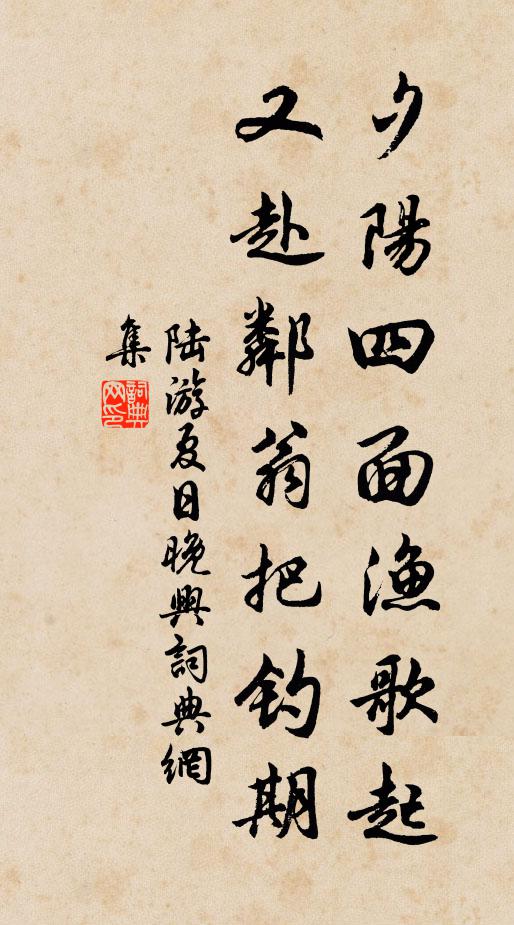 夕陽四面漁歌起
又赴鄰翁把釣期
陸游夏日晚興詞典網
集
詞典網印